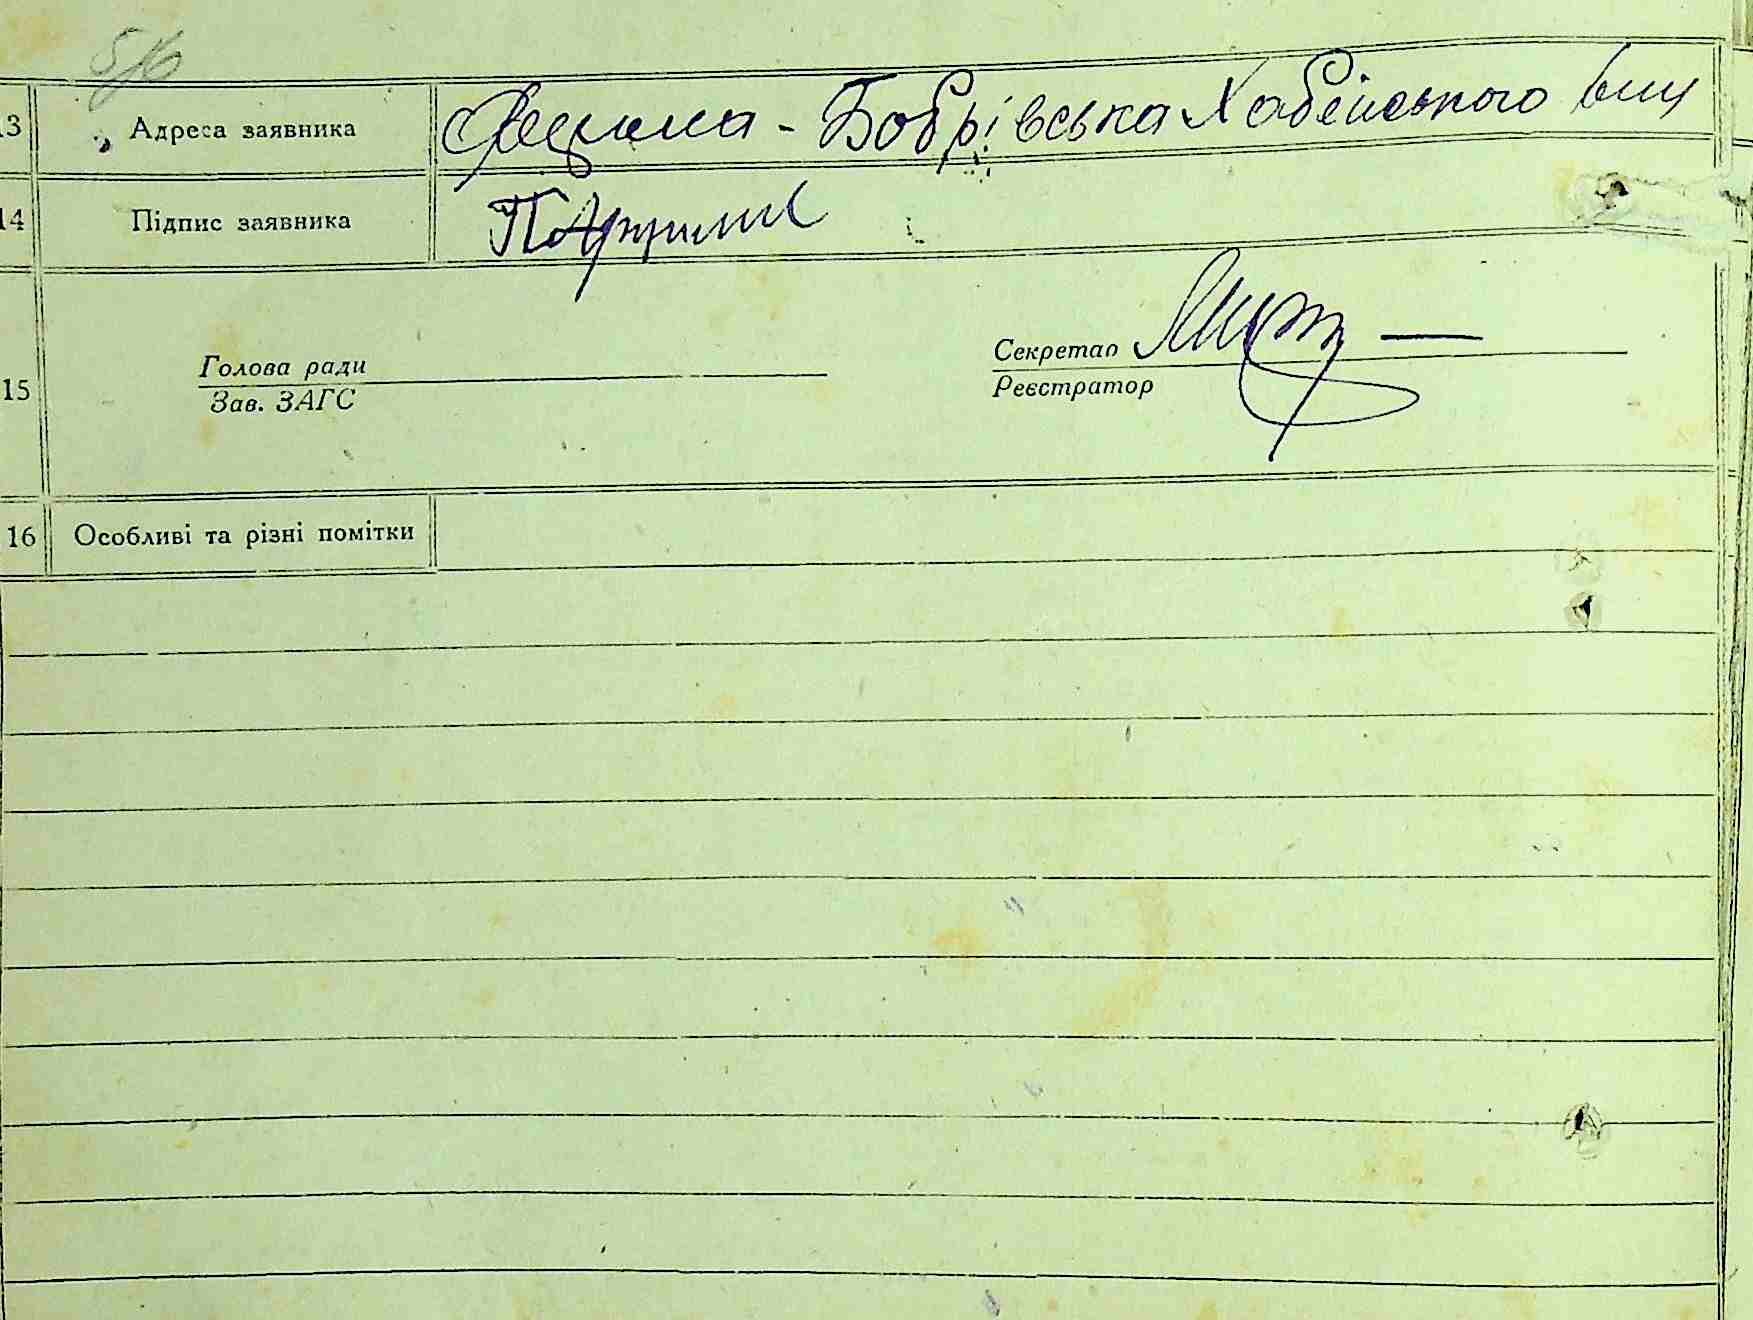 5/6
13 Адреса заявника - Бобрівська Хабенського
14 Підпис заявника
Голова ради
Зав. ЗАГС
Секретар
Реєстратор
15
16 Особливі та різні помітки